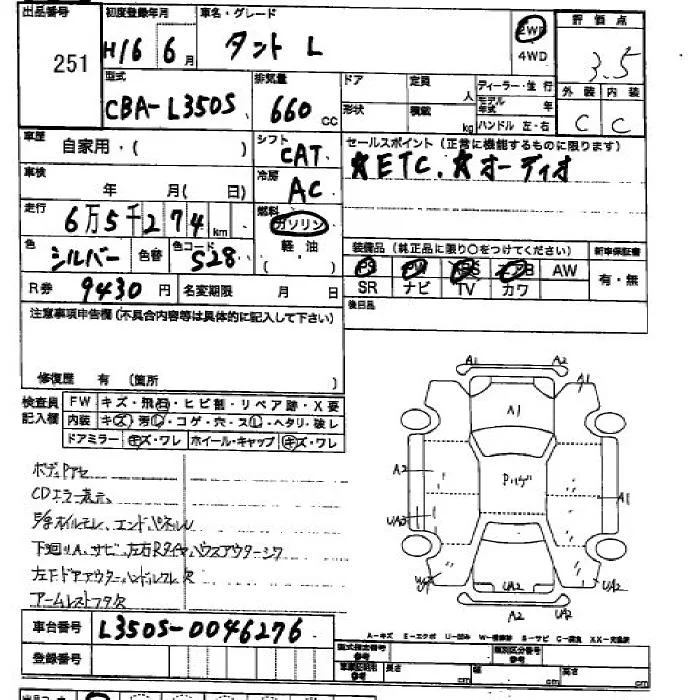 出品番号
251
初度登録年月
H16 6月
車名・グレード
タント L
2WD
4WD
評価点
3.5
外装 内装
C C
型式
CBA-L350S
排気量
660 cc
ドア
形状
定員
人
積載
kg
ディーラー・並行
モデル年式 年
ハンドル 左・右
車歴
自家用・( )
シフト
CAT
セールスポイント(正常に機能するものに限ります)
★ETC.★オーディオ
車検
年 月( 日)
冷房
AC
走行
6万5千274km
燃料
ガソリン
軽油
( )
色
シルバー
色替
色コード
S28
装備品(純正品に限り○をつけてください)
新車保証書
AW
SR ナビ TV カワ
有・無
R券
9430円
名変期限 月 日
後日品
注意事項申告欄(不具合内容等は具体的に記入して下さい)
修復歴 有(箇所 )
検査員記入欄
FW キズ・飛石・ヒビ割・リペア跡・X要
内装 キズ・汚レ・コゲ・穴・スレ・ヘタリ・破レ
ドアミラー キズ・ワレ ホイール・キャップ キズ・ワレ
CDエラー表示
下廻りA、サビ、左右Rタイヤハウスアウターシワ
アームレストフタ欠
A1 A2
A1
A1
A2
A1
UA2
UA2
UA2
A2
A-キズ E-エクボ U-凹み
車台番号
L350S-0046276
登録番号
型式指定番号
参考
類別区分番号
参考
長さ cm
幅 cm
高さ cm